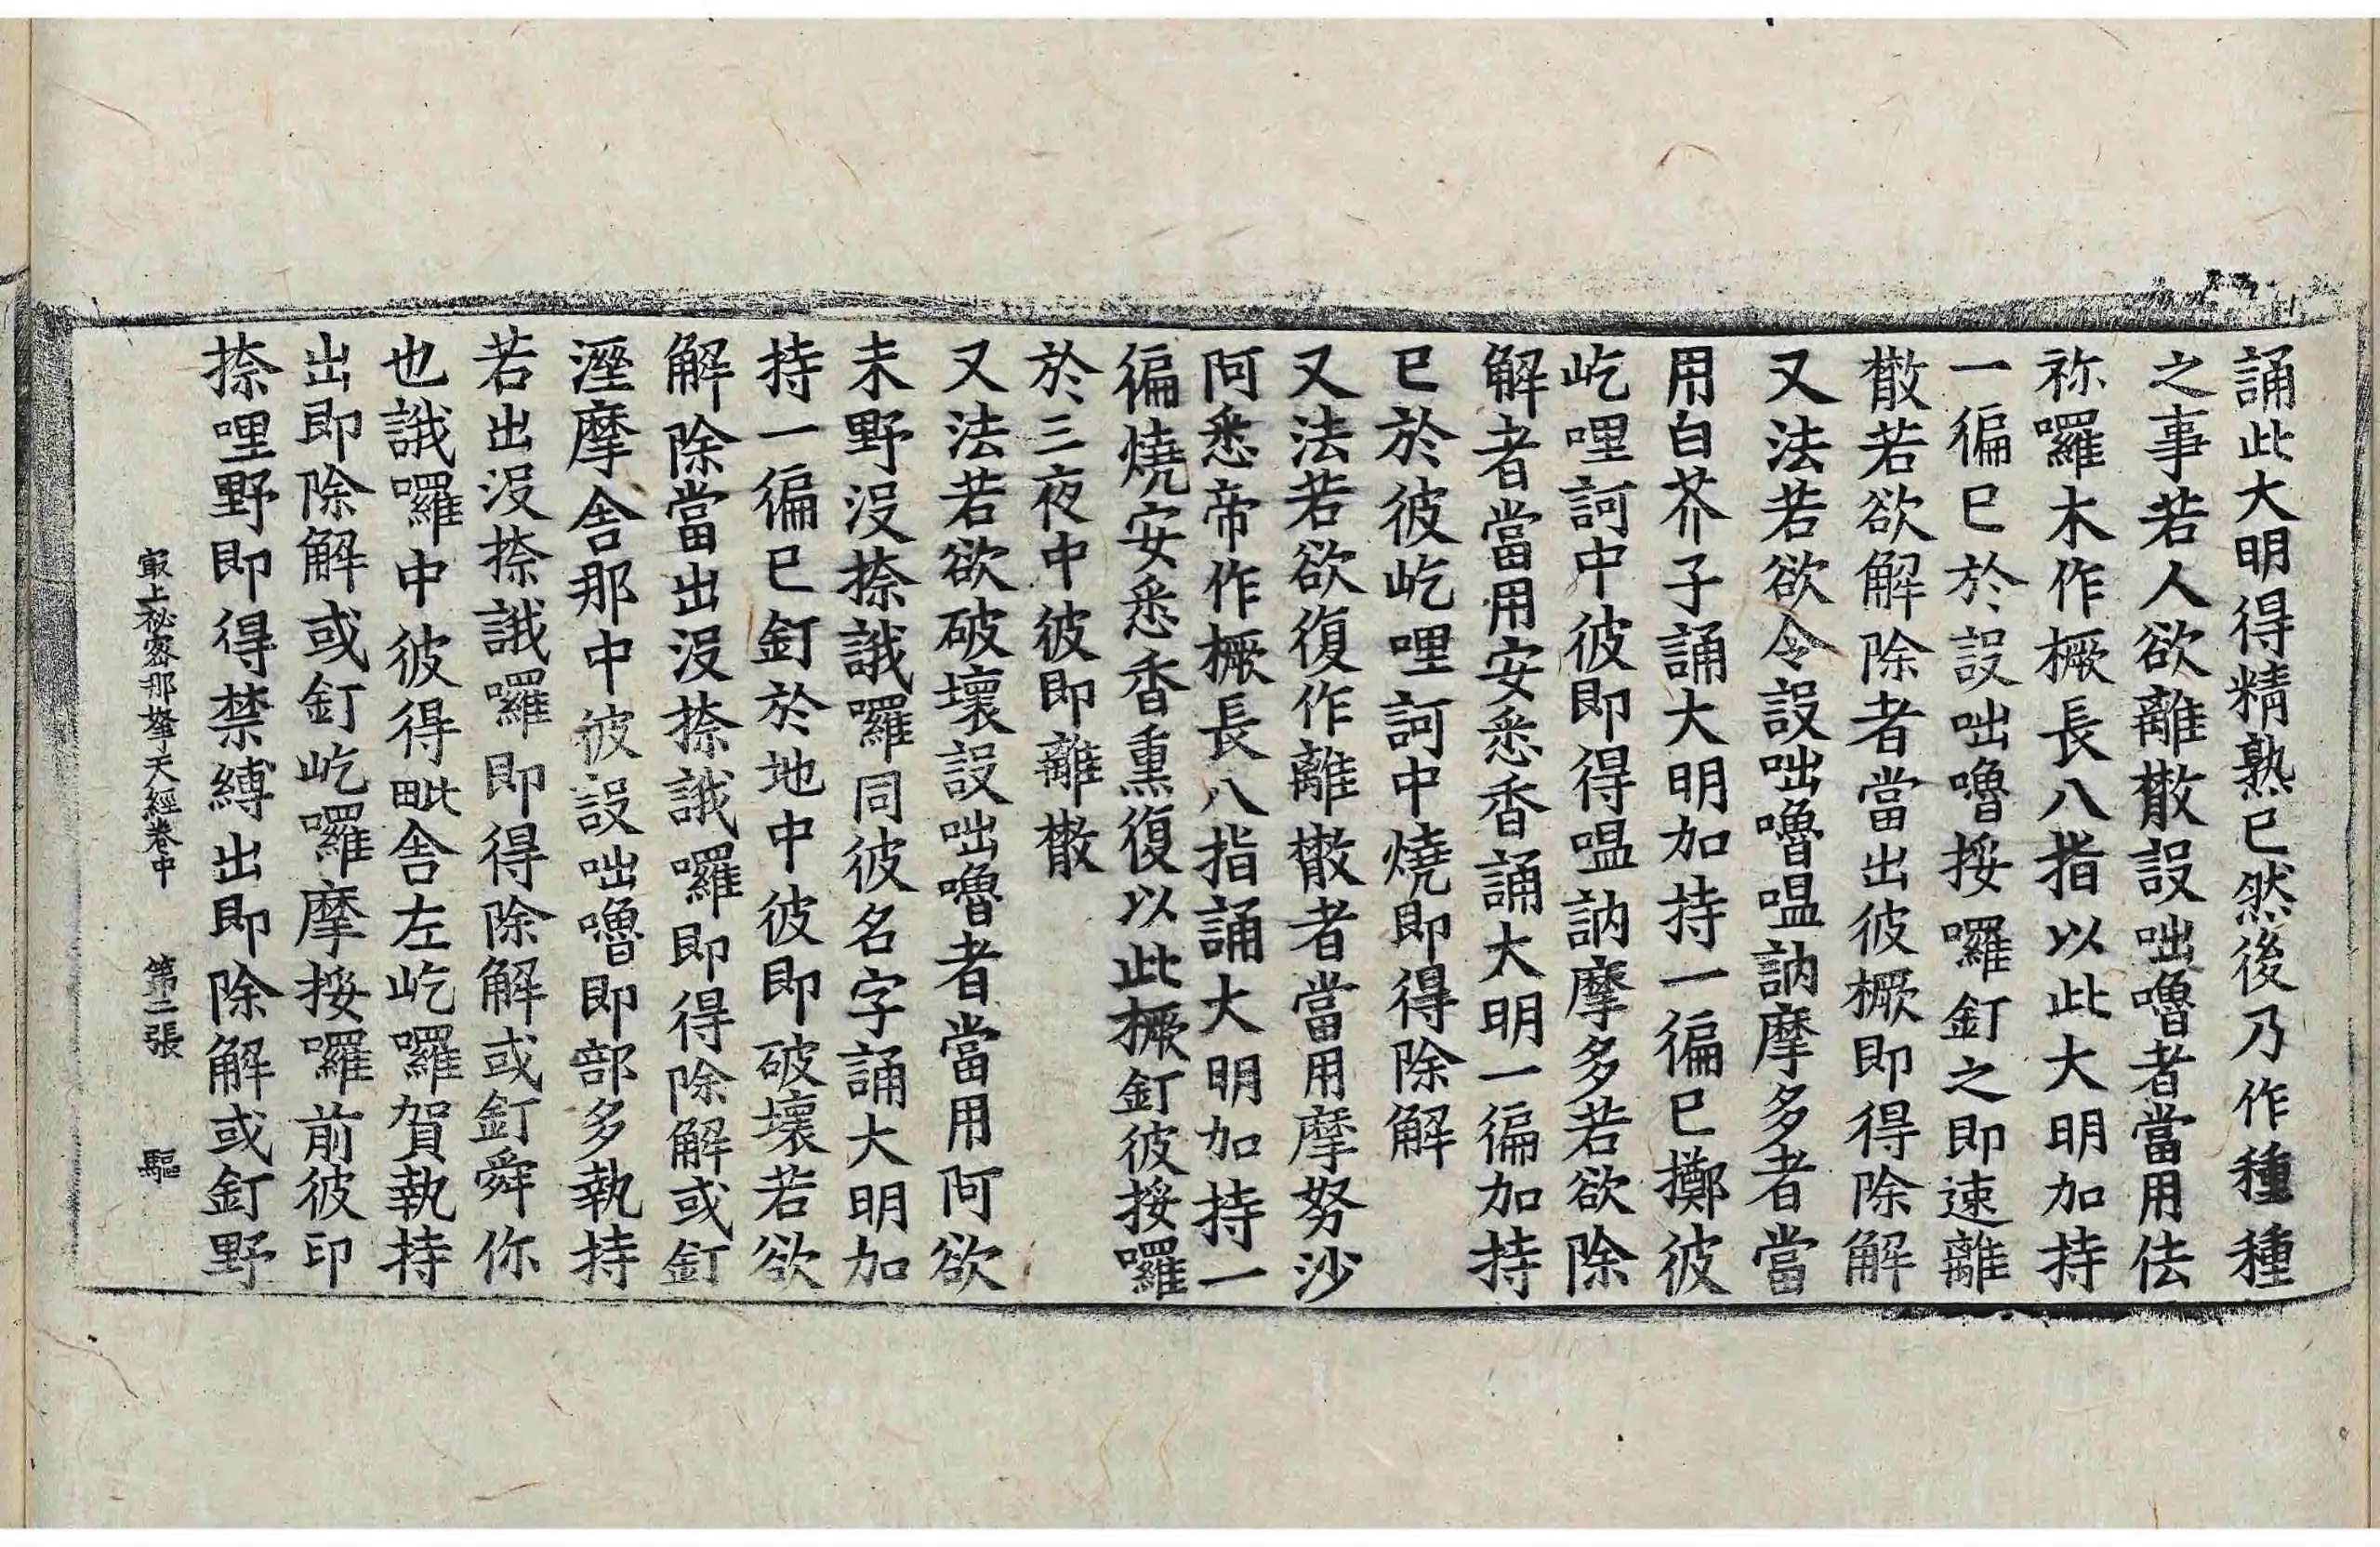 誦此大明得精熟已然後乃作種種
之事若人欲離散設咄嚕者當用佉
祢囉木作橛長八指以此大明加持
一徧已於設咄嚕挼囉釘之即速離
散若欲解除者當出彼橛即得除解
又法若欲令設咄嚕嗢訥摩多者當
用白芥子誦大明加持一徧已擲彼
屹哩訶中彼即得嗢訥摩多若欲除
解者當用安悉香誦大明一徧加持
已於彼屹哩訶中燒即得除解
又法若欲復作離散者當用摩努沙
阿悉帝作橛長八指誦大明加持一
徧燒安悉香熏復以此橛釘彼挼囉
於三夜中彼即離散
又法若欲破壞設咄嚕者當用阿欲
末野沒捺誐囉同彼名字誦大明加
持一徧已釘於地中彼即破壞若欲
解除當出沒捺誐囉即得除解或釘
溼摩舍那中彼設咄嚕即部多執持
若出沒捺誐囉即得除解或釘舜你
也誐囉中彼得毗舍左屹囉賀執持
出即除解或釘屹囉摩挼囉前彼印
捺哩野即得禁縛出即除解或釘野
㝡上秘密那拏天經卷中 第二張 驅